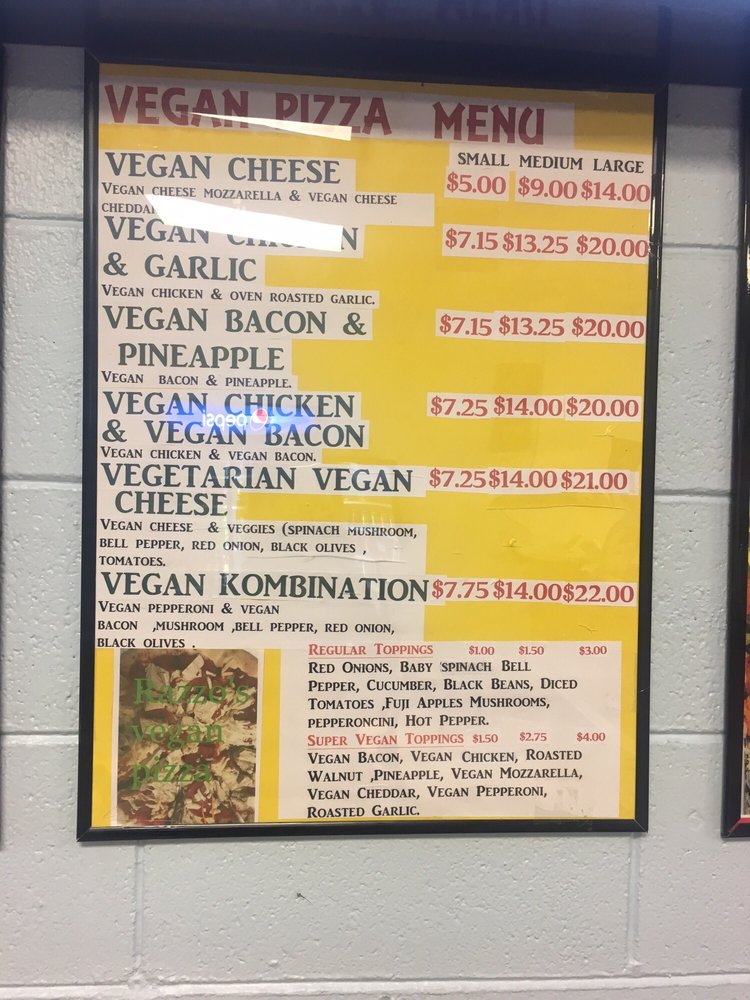 VEGAN PIZZA MENU
SMALL MEDIUM LARGE
VEGAN CHEESE $5.00 $9.00 $14.00
VEGAN CHEESE MOZZARELLA & VEGAN CHEESE
CHEDDAR
VEGAN CHICKEN $7.15 $13.25 $20.00
& GARLIC
VEGAN CHICKEN & OVEN ROASTED GARLIC.
VEGAN BACON & $7.15 $13.25 $20.00
PINEAPPLE
VEGAN BACON & PINEAPPLE.
VEGAN CHICKEN $7.25 $14.00 $20.00
& VEGAN BACON
VEGAN CHICKEN & VEGAN BACON.
VEGETARIAN VEGAN $7.25 $14.00 $21.00
CHEESE
VEGAN CHEESE & VEGGIES (SPINACH MUSHROOM,
BELL PEPPER, RED ONION, BLACK OLIVES ,
TOMATOES.
VEGAN KOMBINATION $7.75 $14.00 $22.00
VEGAN PEPPERONI & VEGAN
BACON ,MUSHROOM ,BELL PEPPER, RED ONION,
BLACK OLIVES .
REGULAR TOPPINGS $1.00 $1.50 $3.00
RED ONIONS, BABY SPINACH BELL
PEPPER, CUCUMBER, BLACK BEANS, DICED
TOMATOES ,FUJI APPLES MUSHROOMS,
PEPPERONCINI, HOT PEPPER.
SUPER VEGAN TOPPINGS $1.50 $2.75 $4.00
VEGAN BACON, VEGAN CHICKEN, ROASTED
WALNUT ,PINEAPPLE, VEGAN MOZZARELLA,
VEGAN CHEDDAR, VEGAN PEPPERONI,
ROASTED GARLIC.
Razzo's
vegan
pizza
pepsi